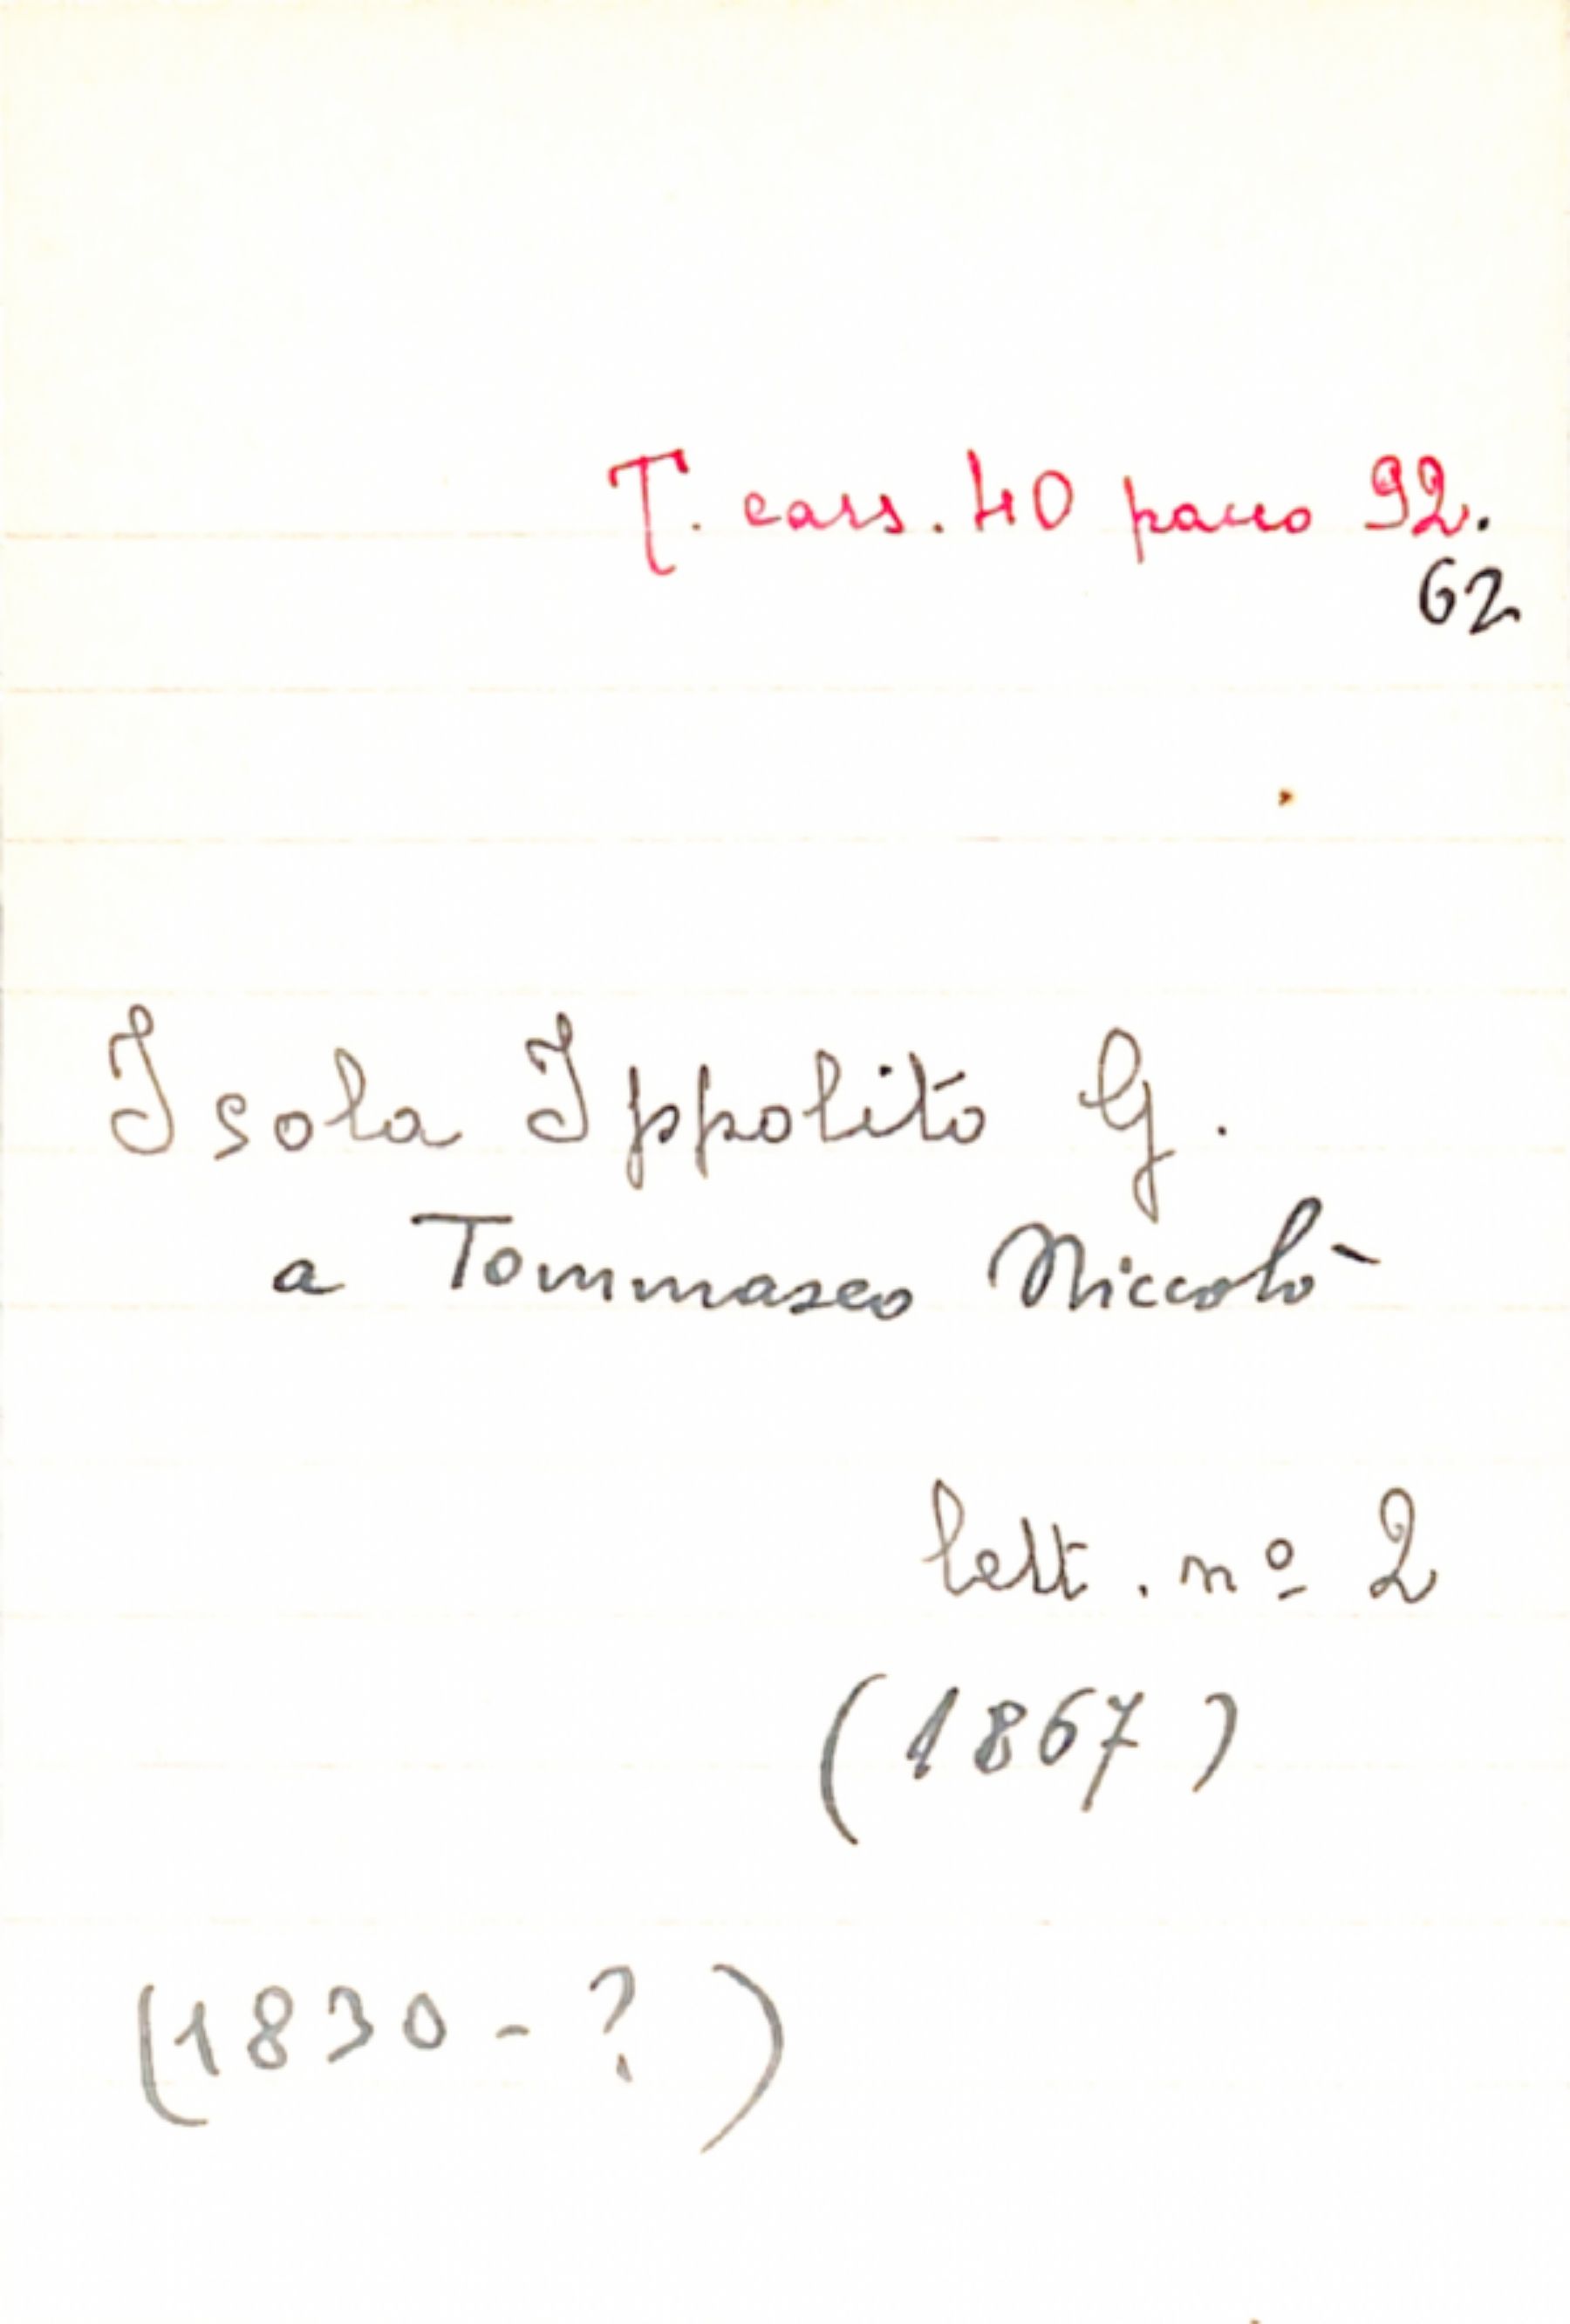 T. cass. 40 pacco 92.
62
Isola Ippolito G.
a Tommaseo Niccolò
lett. nº 2
(1867)
(1830-?)